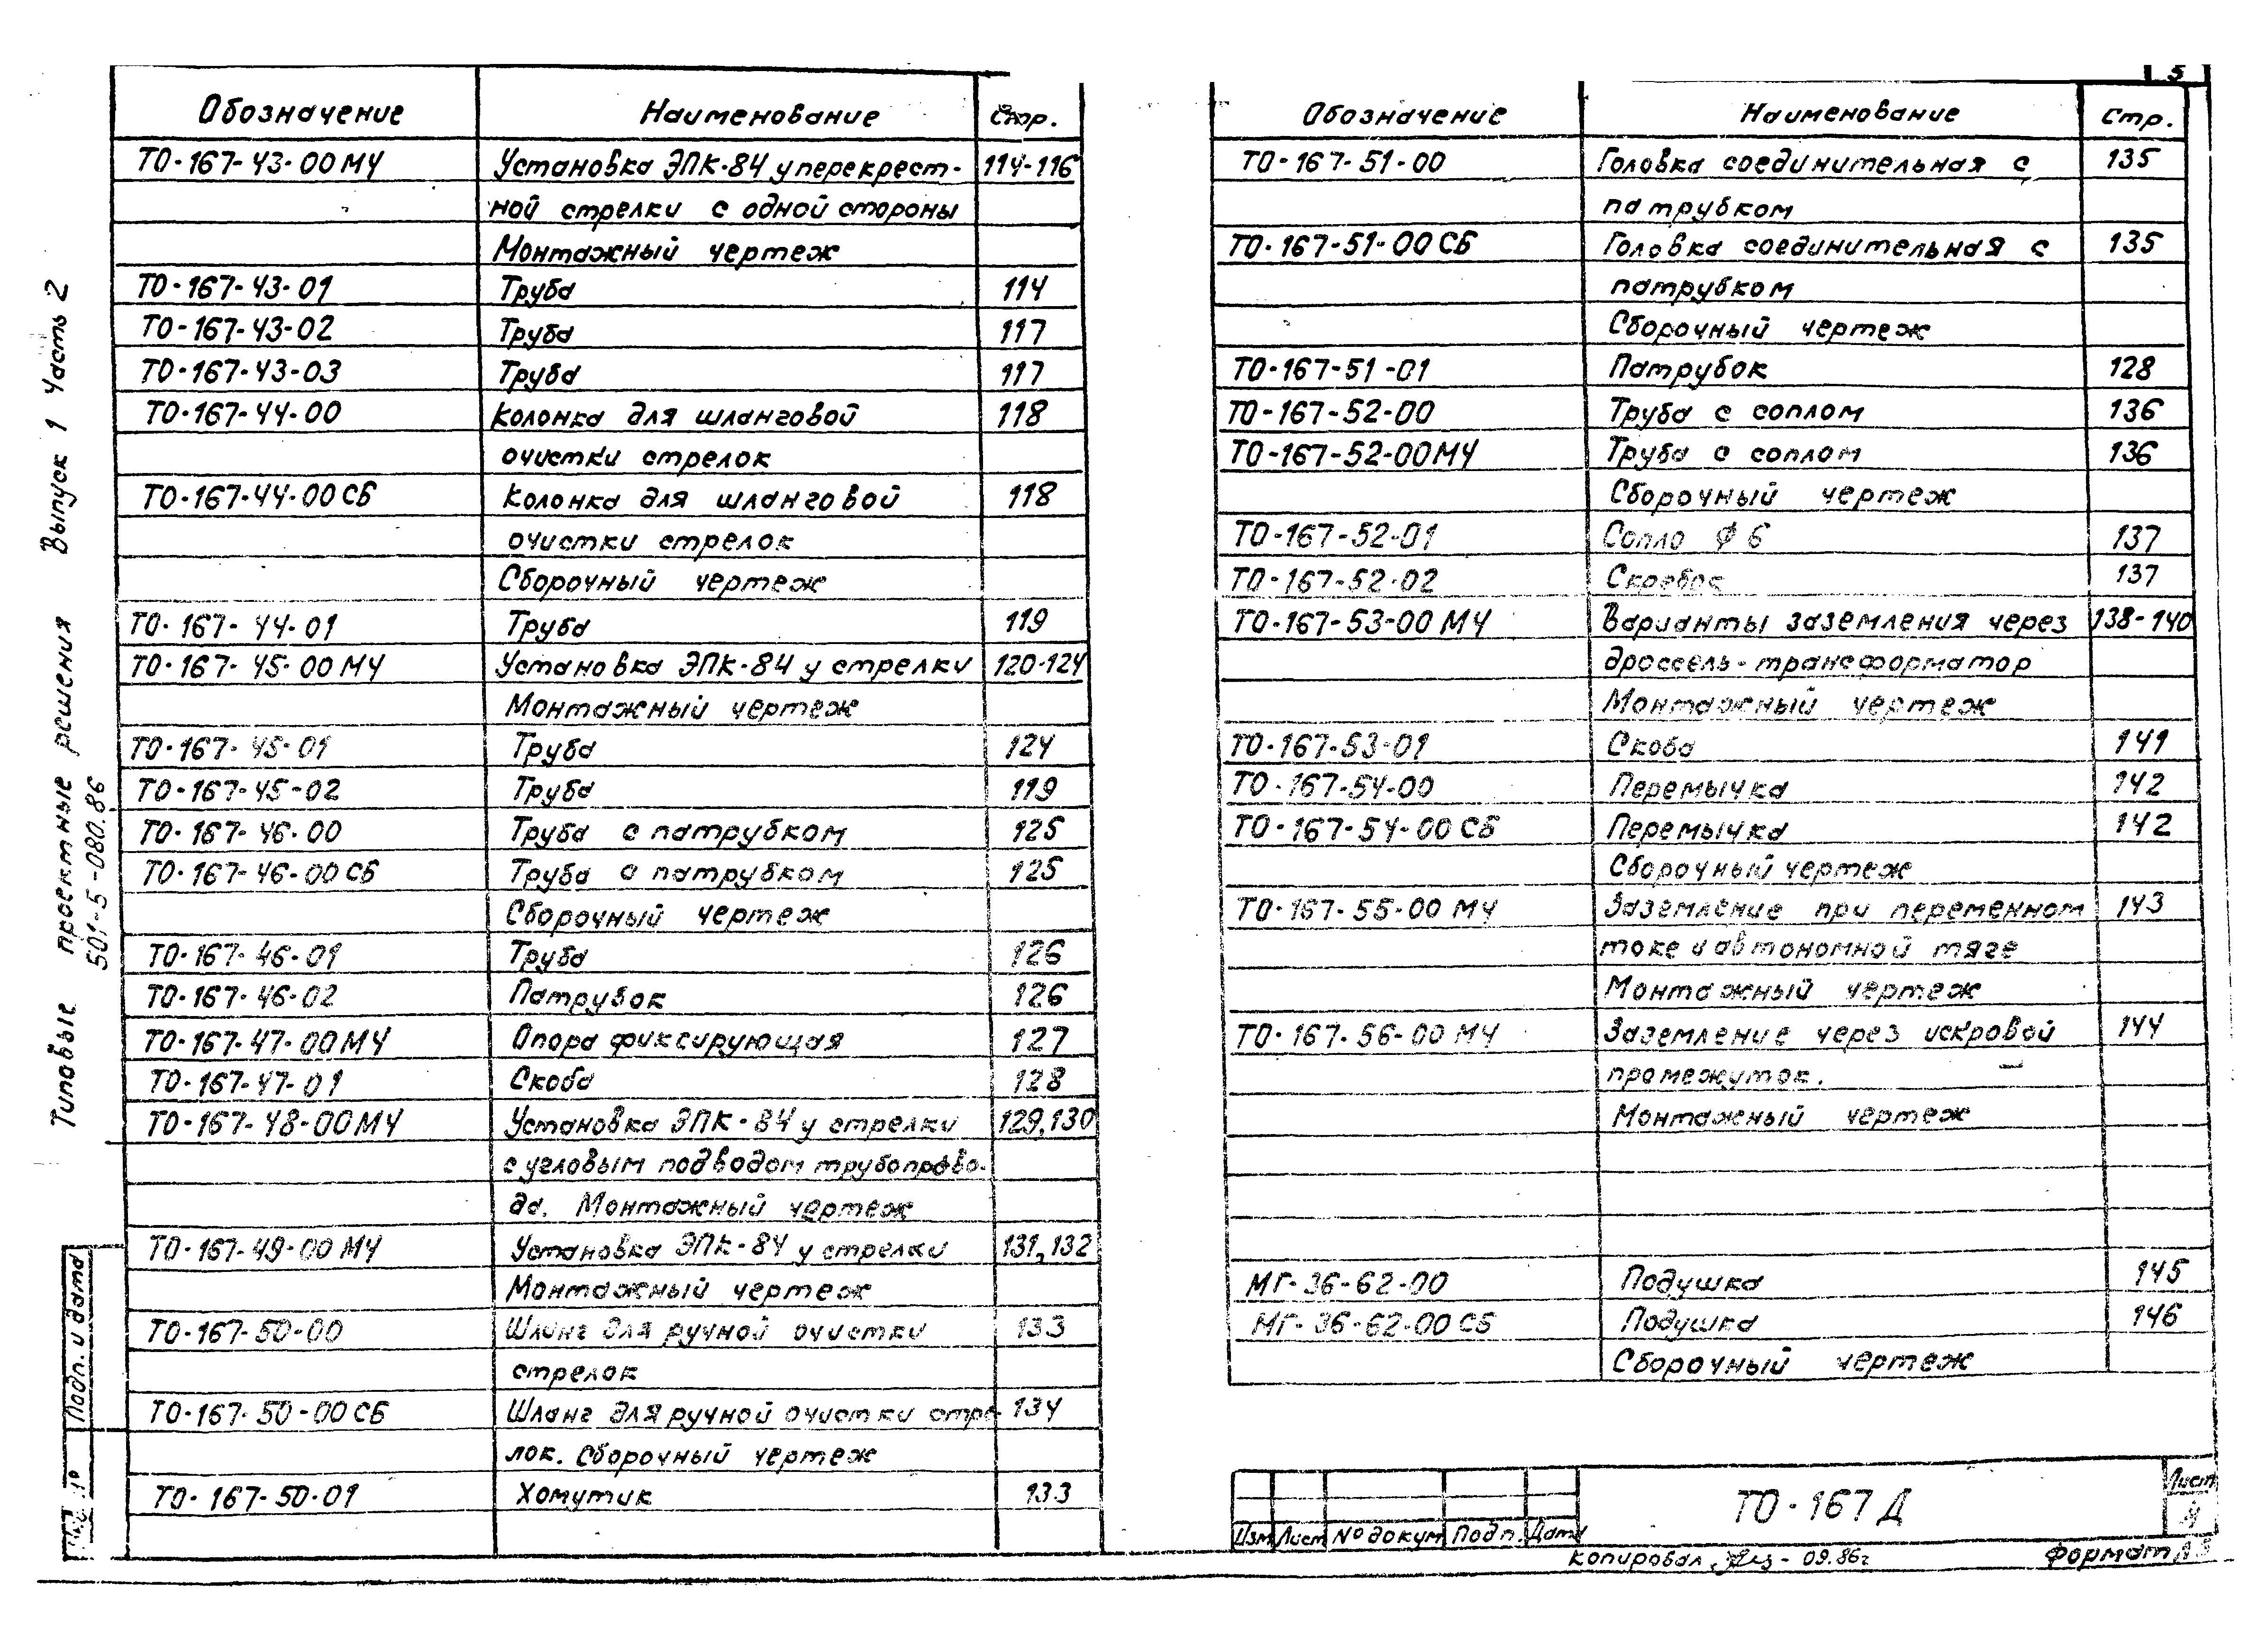 5
Типовые проектные решения Выпуск 1 Часть 2
501-5-080.86
Подп. и дата
Обозначение Наименование Стр.
ТО-167-43-00МЧ Установка ЭПК-84 у перекрест- 114-116
ной стрелки с одной стороны
Монтажный чертеж
ТО-167-43-01 Труба 114
ТО-167-43-02 Труба 117
ТО-167-43-03 Труба 117
ТО-167-44-00 Колонка для шланговой 118
очистки стрелок
ТО-167-44-00СБ Колонка для шланговой 118
очистки стрелок
Сборочный чертеж
ТО-167-44-01 Труба 119
ТО-167-45-00МЧ Установка ЭПК-84 у стрелки 120-124
Монтажный чертеж
ТО-167-45-01 Труба 124
ТО-167-45-02 Труба 119
ТО-167-46-00 Труба с патрубком 125
ТО-167-46-00СБ Труба с патрубком 125
Сборочный чертеж
ТО-167-46-01 Труба 126
ТО-167-46-02 Патрубок 126
ТО-167-47-00МЧ Опора фиксирующая 127
ТО-167-47-01 Скоба 128
ТО-167-48-00МЧ Установка ЭПК-84 у стрелки 129,130
с угловым подводом трубопрово-
да. Монтажный чертеж
ТО-167-49-00МЧ Установка ЭПК-84 у стрелки 131,132
Монтажный чертеж
ТО-167-50-00 Шланг для ручной очистки 133
стрелок
ТО-167-50-00СБ Шланг для ручной очистки стре- 134
лок. Сборочный чертеж
ТО-167-50-01 Хомутик 133
Обозначение Наименование Стр.
ТО-167-51-00 Головка соединительная с 135
патрубком
ТО-167-51-00СБ Головка соединительная с 135
патрубком
Сборочный чертеж
ТО-167-51-01 Патрубок 128
ТО-167-52-00 Труба с соплом 136
ТО-167-52-00МЧ Труба с соплом 136
Сборочный чертеж
ТО-167-52-01 Сопло ф6 137
ТО-167-52-02 137
ТО-167-53-00МЧ Варианты заземления через 138-140
дроссель-трансформатор
Монтажный чертеж
ТО-167-53-01 Скоба 141
ТО-167-54-00 Перемычка 142
ТО-167-54-00СБ Перемычка 142
Сборочный чертеж
ТО-167-55-00МЧ Заземление при переменном 143
токе и автономной тяге
Монтажный чертеж
ТО-167-56-00МЧ Заземление через искровой 144
промежуток.
Монтажный чертеж
МГ-36-62-00 Подушка 145
МГ-36-62-00СБ Подушка 146
Сборочный чертеж
Изм Лист № докум Подп. Дата
ТО-167 Д
Лист
4
Копировал 09.86г
Формат А3